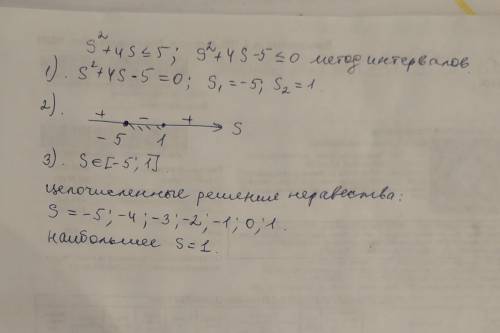 S²+4S≤5; S²+4S-5≤0 метод интервалов.
1). S²+4S-5=0; S₁=-5; S₂=1.
2). + - + S
-5 1
3). S∈[-5;1]
целочисленные решение неравества:
S=-5;-4;-3;-2;-1;0;1.
наибольшее S=1.